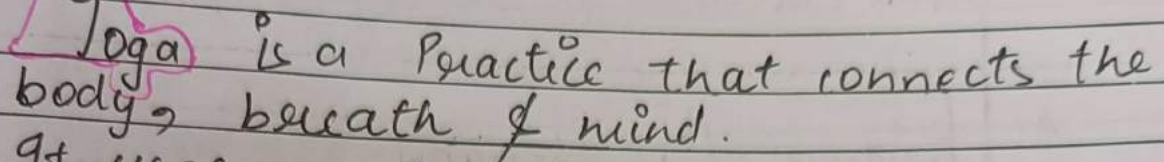 Yoga is a Practice that connects the
body, breath & mind.